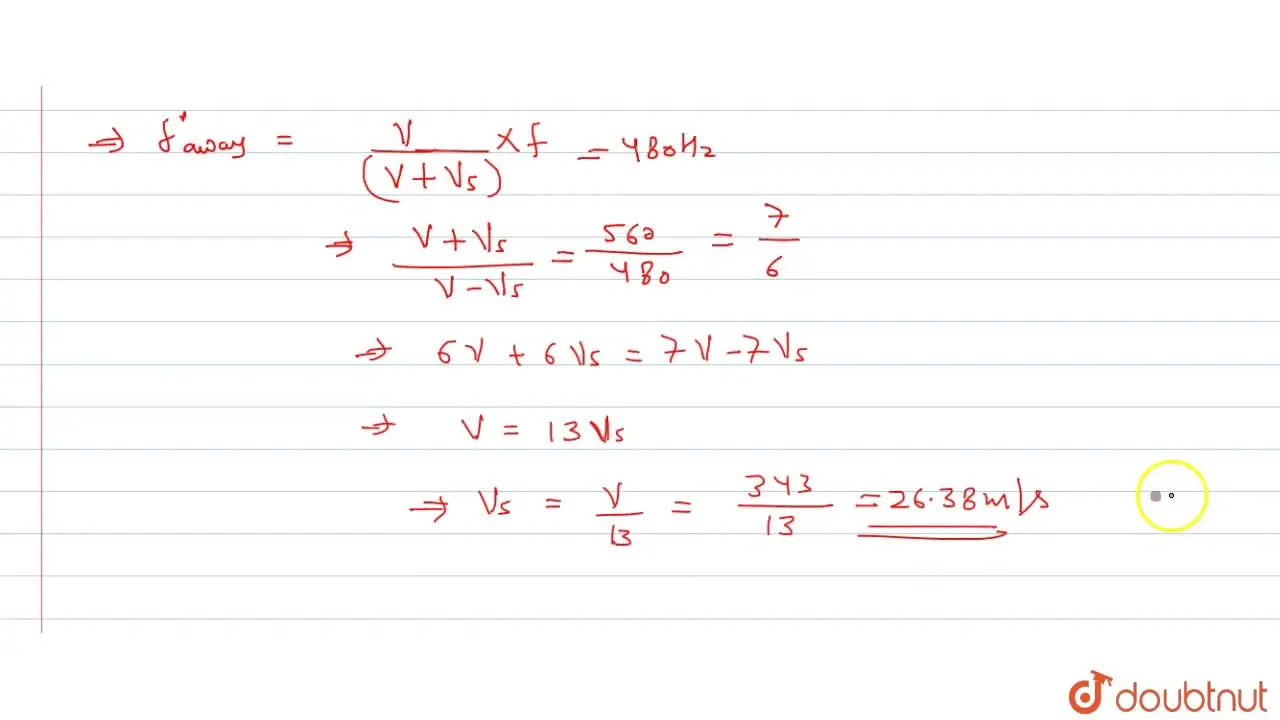 ⇒ f'away = V/(V+Vs) × f = 480Hz
⇒ V+Vs/V-Vs = 560/480 = 7/6
⇒ 6V + 6Vs = 7V - 7Vs
⇒ V = 13Vs
⇒ Vs = V/13 = 343/13 = 26.38m/s
doubtnut